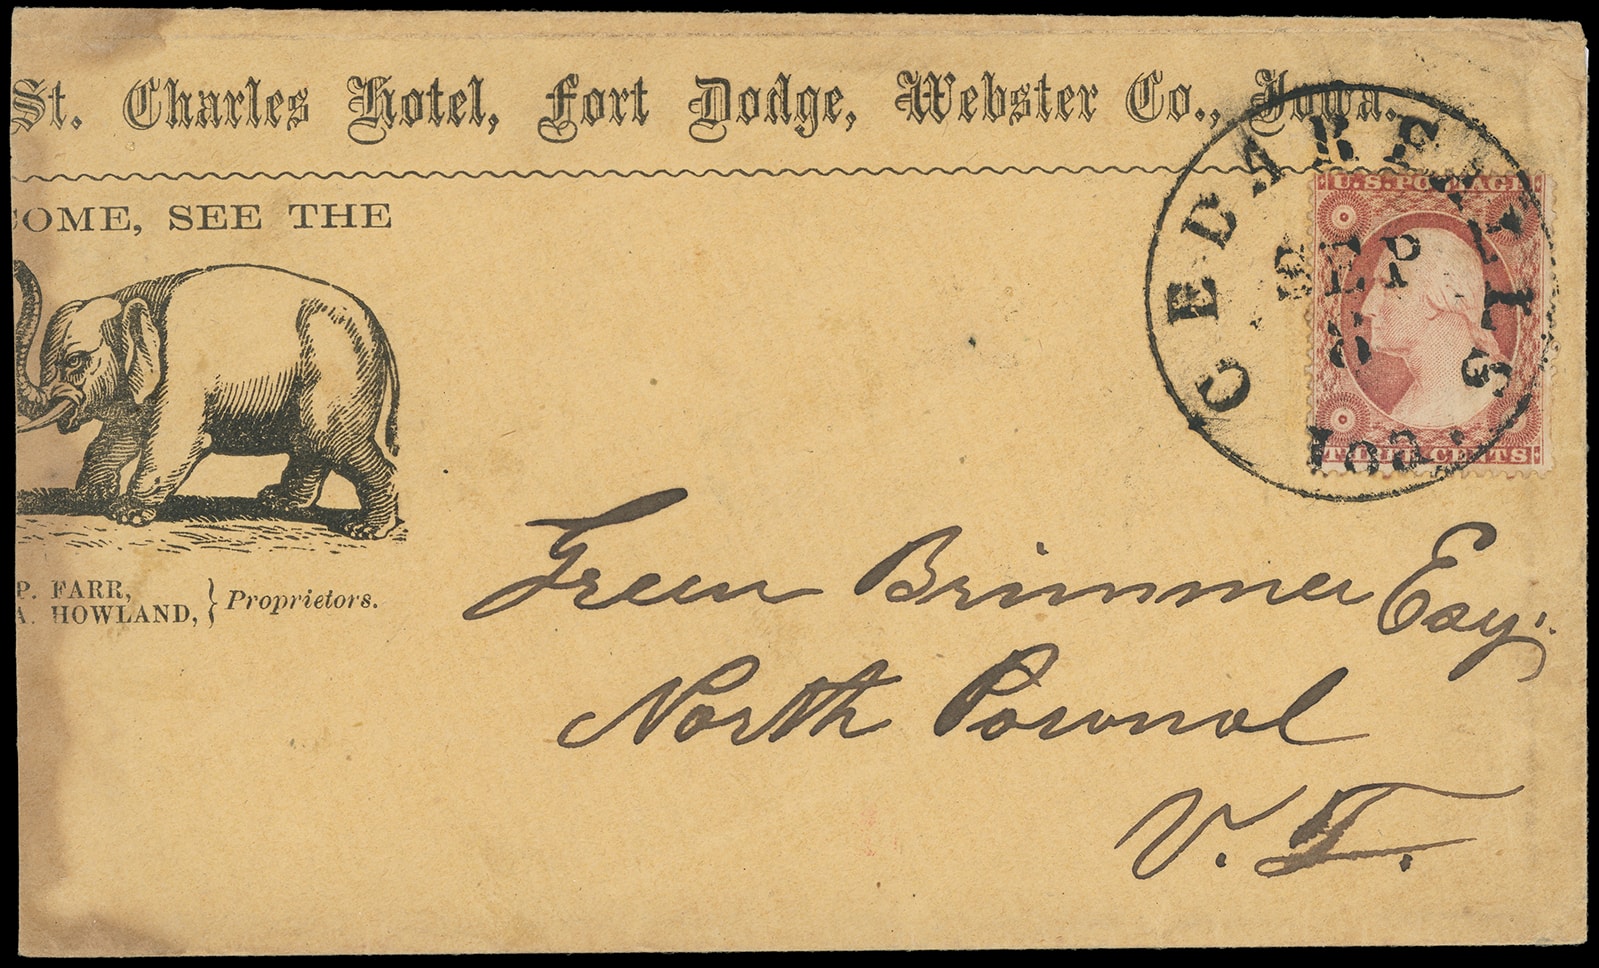 St. Charles Hotel, Fort Dodge, Webster Co., Iowa.
COME, SEE THE
P. FARR,
A. HOWLAND, } Proprietors.
CEDAR FALLS
SEP
8
Ioa.
U.S. POSTAGE
THREE CENTS
Green Brimmer Esq.
North Pownal
V.T.